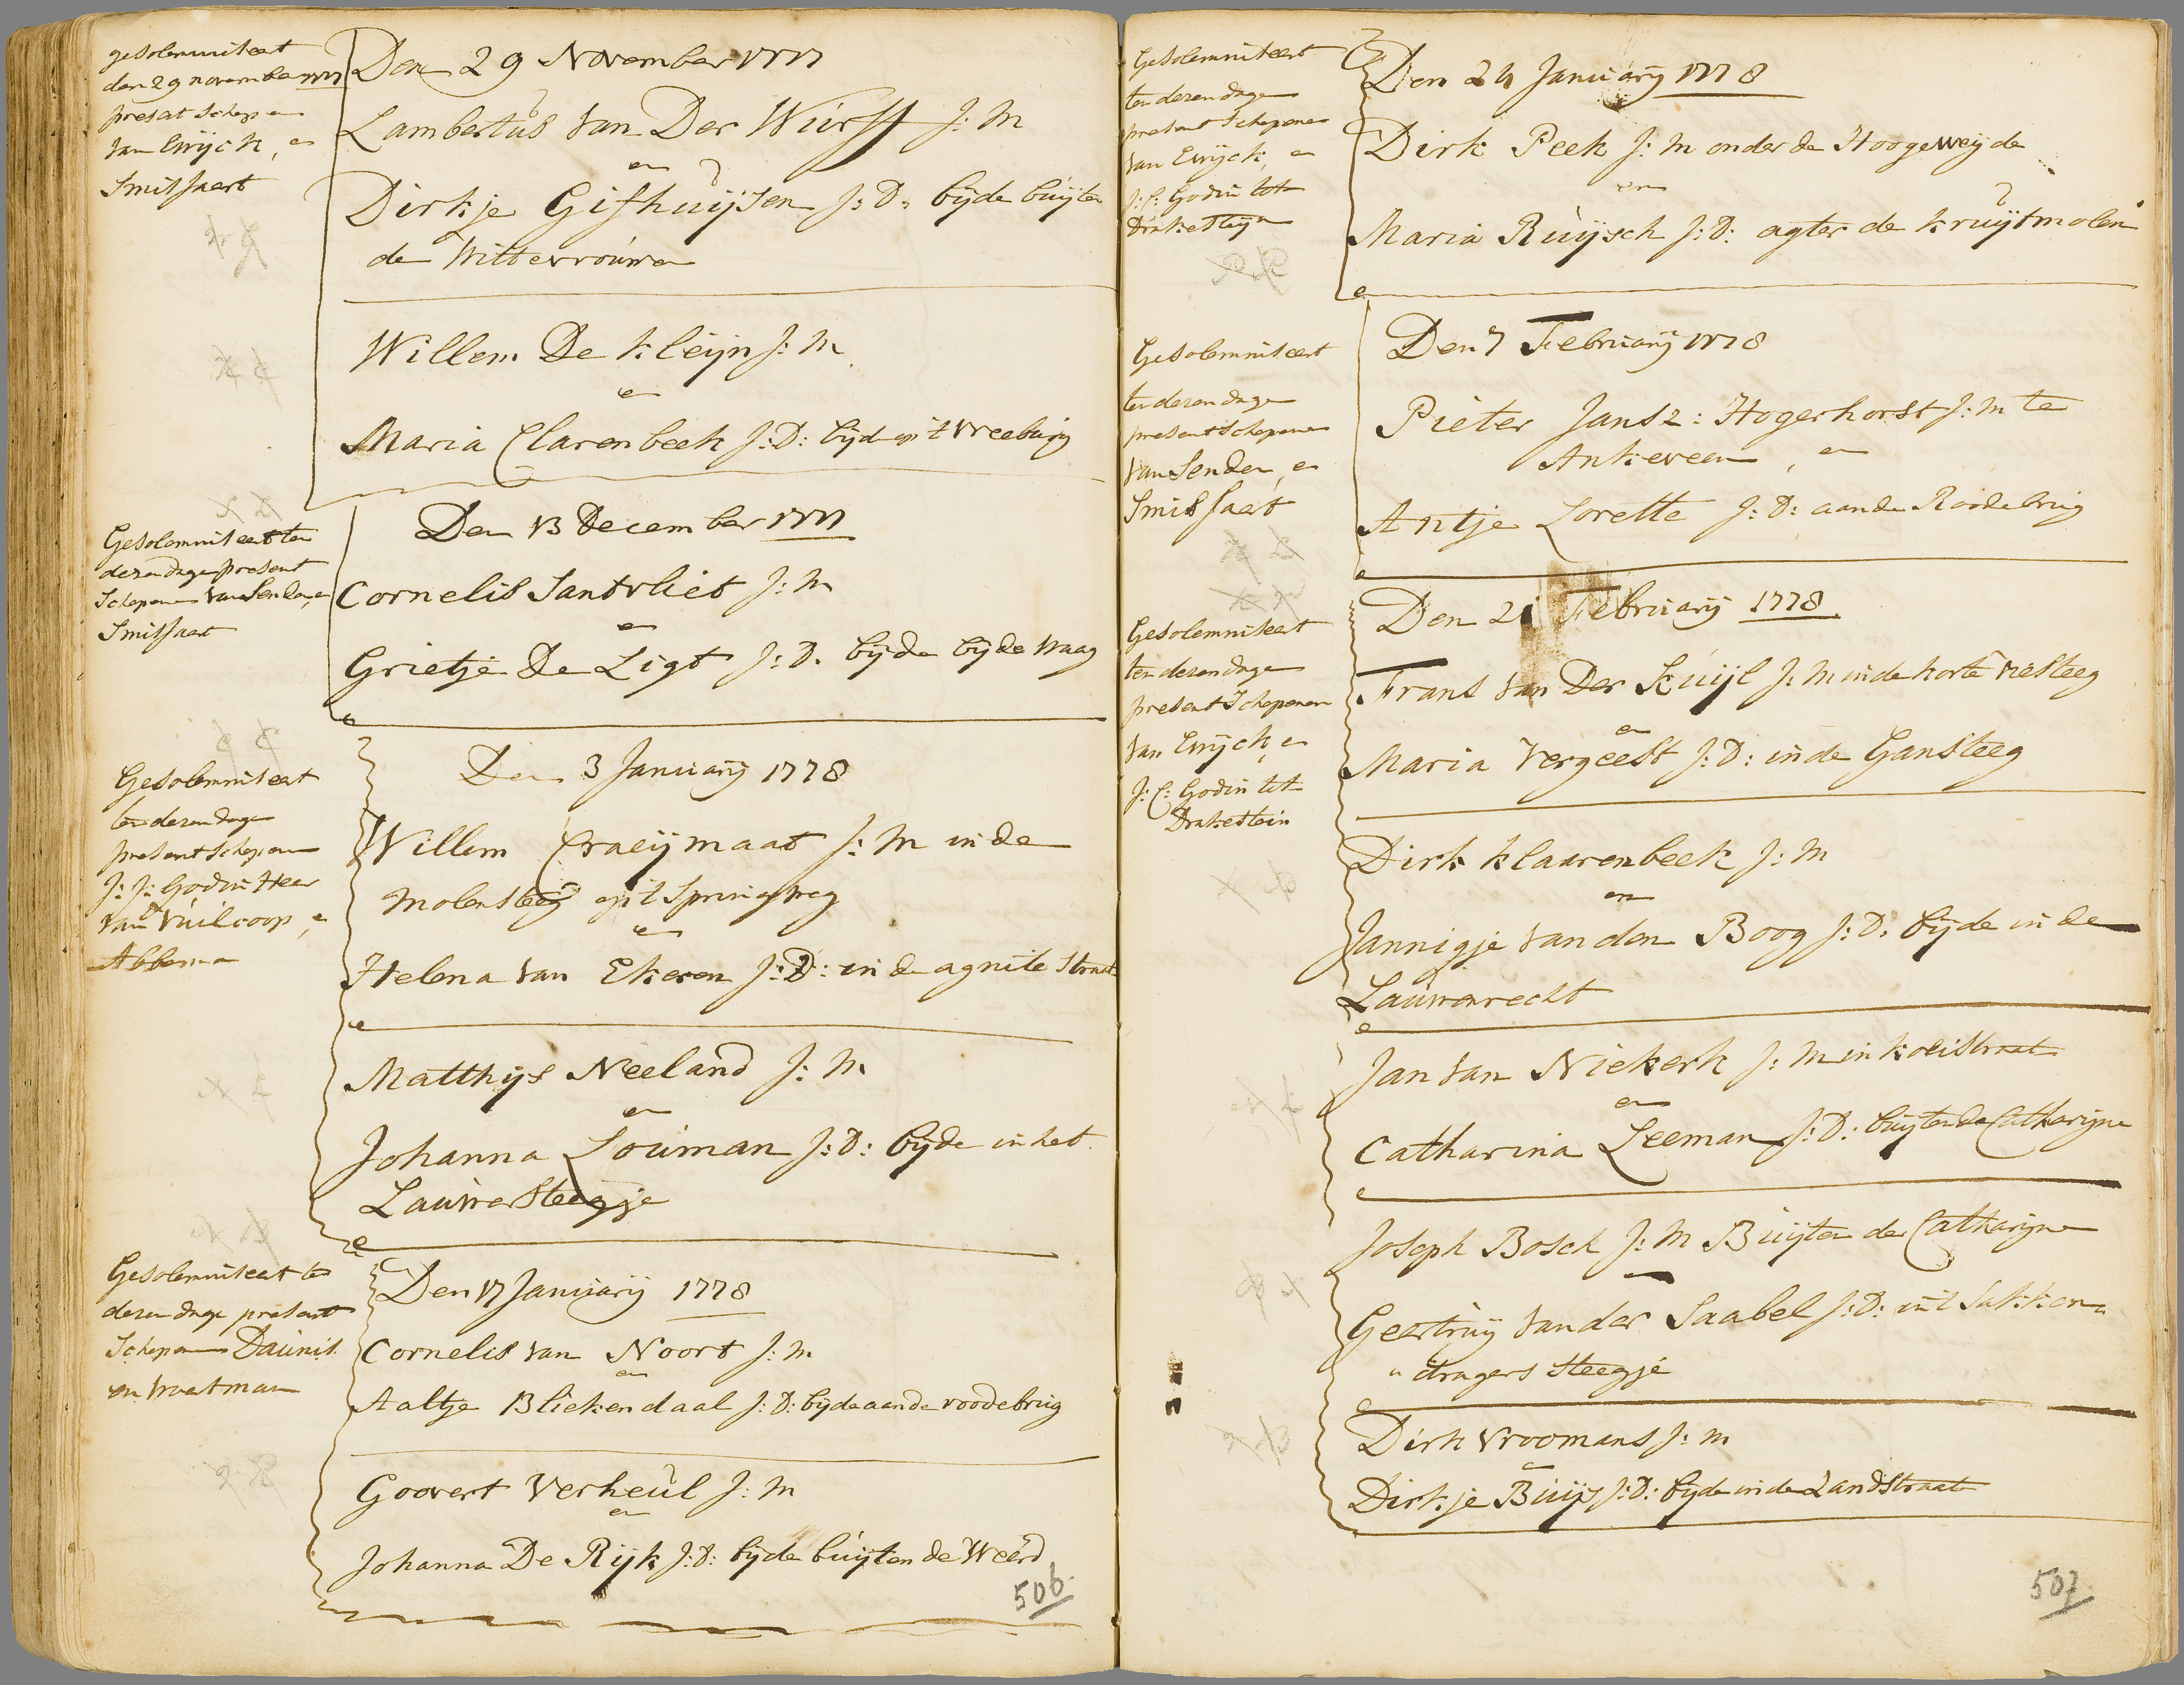 gesolemniseert
den 29 november 1777
present Schepen
van Ewijck, en
Smitsaert
Den 29 November 1777
Lambertus van Der Wurff J: M
en
Dirkje Gifhuijsen J: D: bijde buijten
de Wittevrouwen
Willem De Kleijn J: M
en
Maria Clarenbeek J: D: bijde op 't Vreeburg
Gesolemniseert ten
dezen dage present
Schepenen van Senden, en
Smitsaert
Den 13 December 1777
Cornelis Santvliet J: M
en
Grietje De Ligt J: D. bijde bijde Waag
Gesolemniseert
ten dezen dage
present Schepenen
J: J: Godin Heer
van Vuilcoop, en
Abbema
Den 3 Januarij 1778
Willem Craeijmaat J: M in de
Molensteeg op 't Springweg
en
Helena van Ekeren J: D: in de agnite Straat
Matthijs Neeland J: M
en
Johanna Louman J: D: bijde in het
Lauwersteegje
Gesolemniseert ten
dezen dage present
Schepenen Daunis
en Voetman
Den 17 Januarij 1778
Cornelis van Noort J: M
en
Aaltje Bliekendaal J: D: bijde aande roodebrug
Goovert Verheul J: M
en
Johanna De Rijk J: D: bijde buijten de Weerd
506.
Gesolemniseert
ten dezen dage
present Schepenen
van Ewijck, en
J: C: Godin tot
Drakesteijn
Den 24 Januarij 1778
Dirk Peek J: M onder de Hoogeweijde
en
Maria Ruijsch J: D: agter de kruijtmolen
Gesolemniseert
ten dezen dage
present Schepenen
van Senden, en
Smitsaert
Den 7 Februarij 1778
Pieter Jansz: Hogerhorst J: M te
Ankeveen, en
Antje Lorette J: D: aande Roodebrug
Gesolemniseert
ten dezen dage
present Schepenen
van Ewijck, en
J: C: Godin tot
Drakestein
Den 21 Februarij 1778
Frans van Der Kuijl J: M in de korte niesteeg
en
Maria Vergeest J: D: in de Gansteeg
Dirk Klaarenbeek J: M
en
Jannigje van den Boog J: D: bijde in de
Lauwerecht
Jan van Niekerk J: M in koeistraat
en
Catharina Leeman J: D: buijten de Catharijne
Joseph Bosch J: M Buijten de Catharijne
Geertruij van der Saabel J: D: in 't Sakken
" dragers Steegje
Dirk Vroomans J: M
en
Dirkje Buijs J: D: bijde in de Landstraat
507.